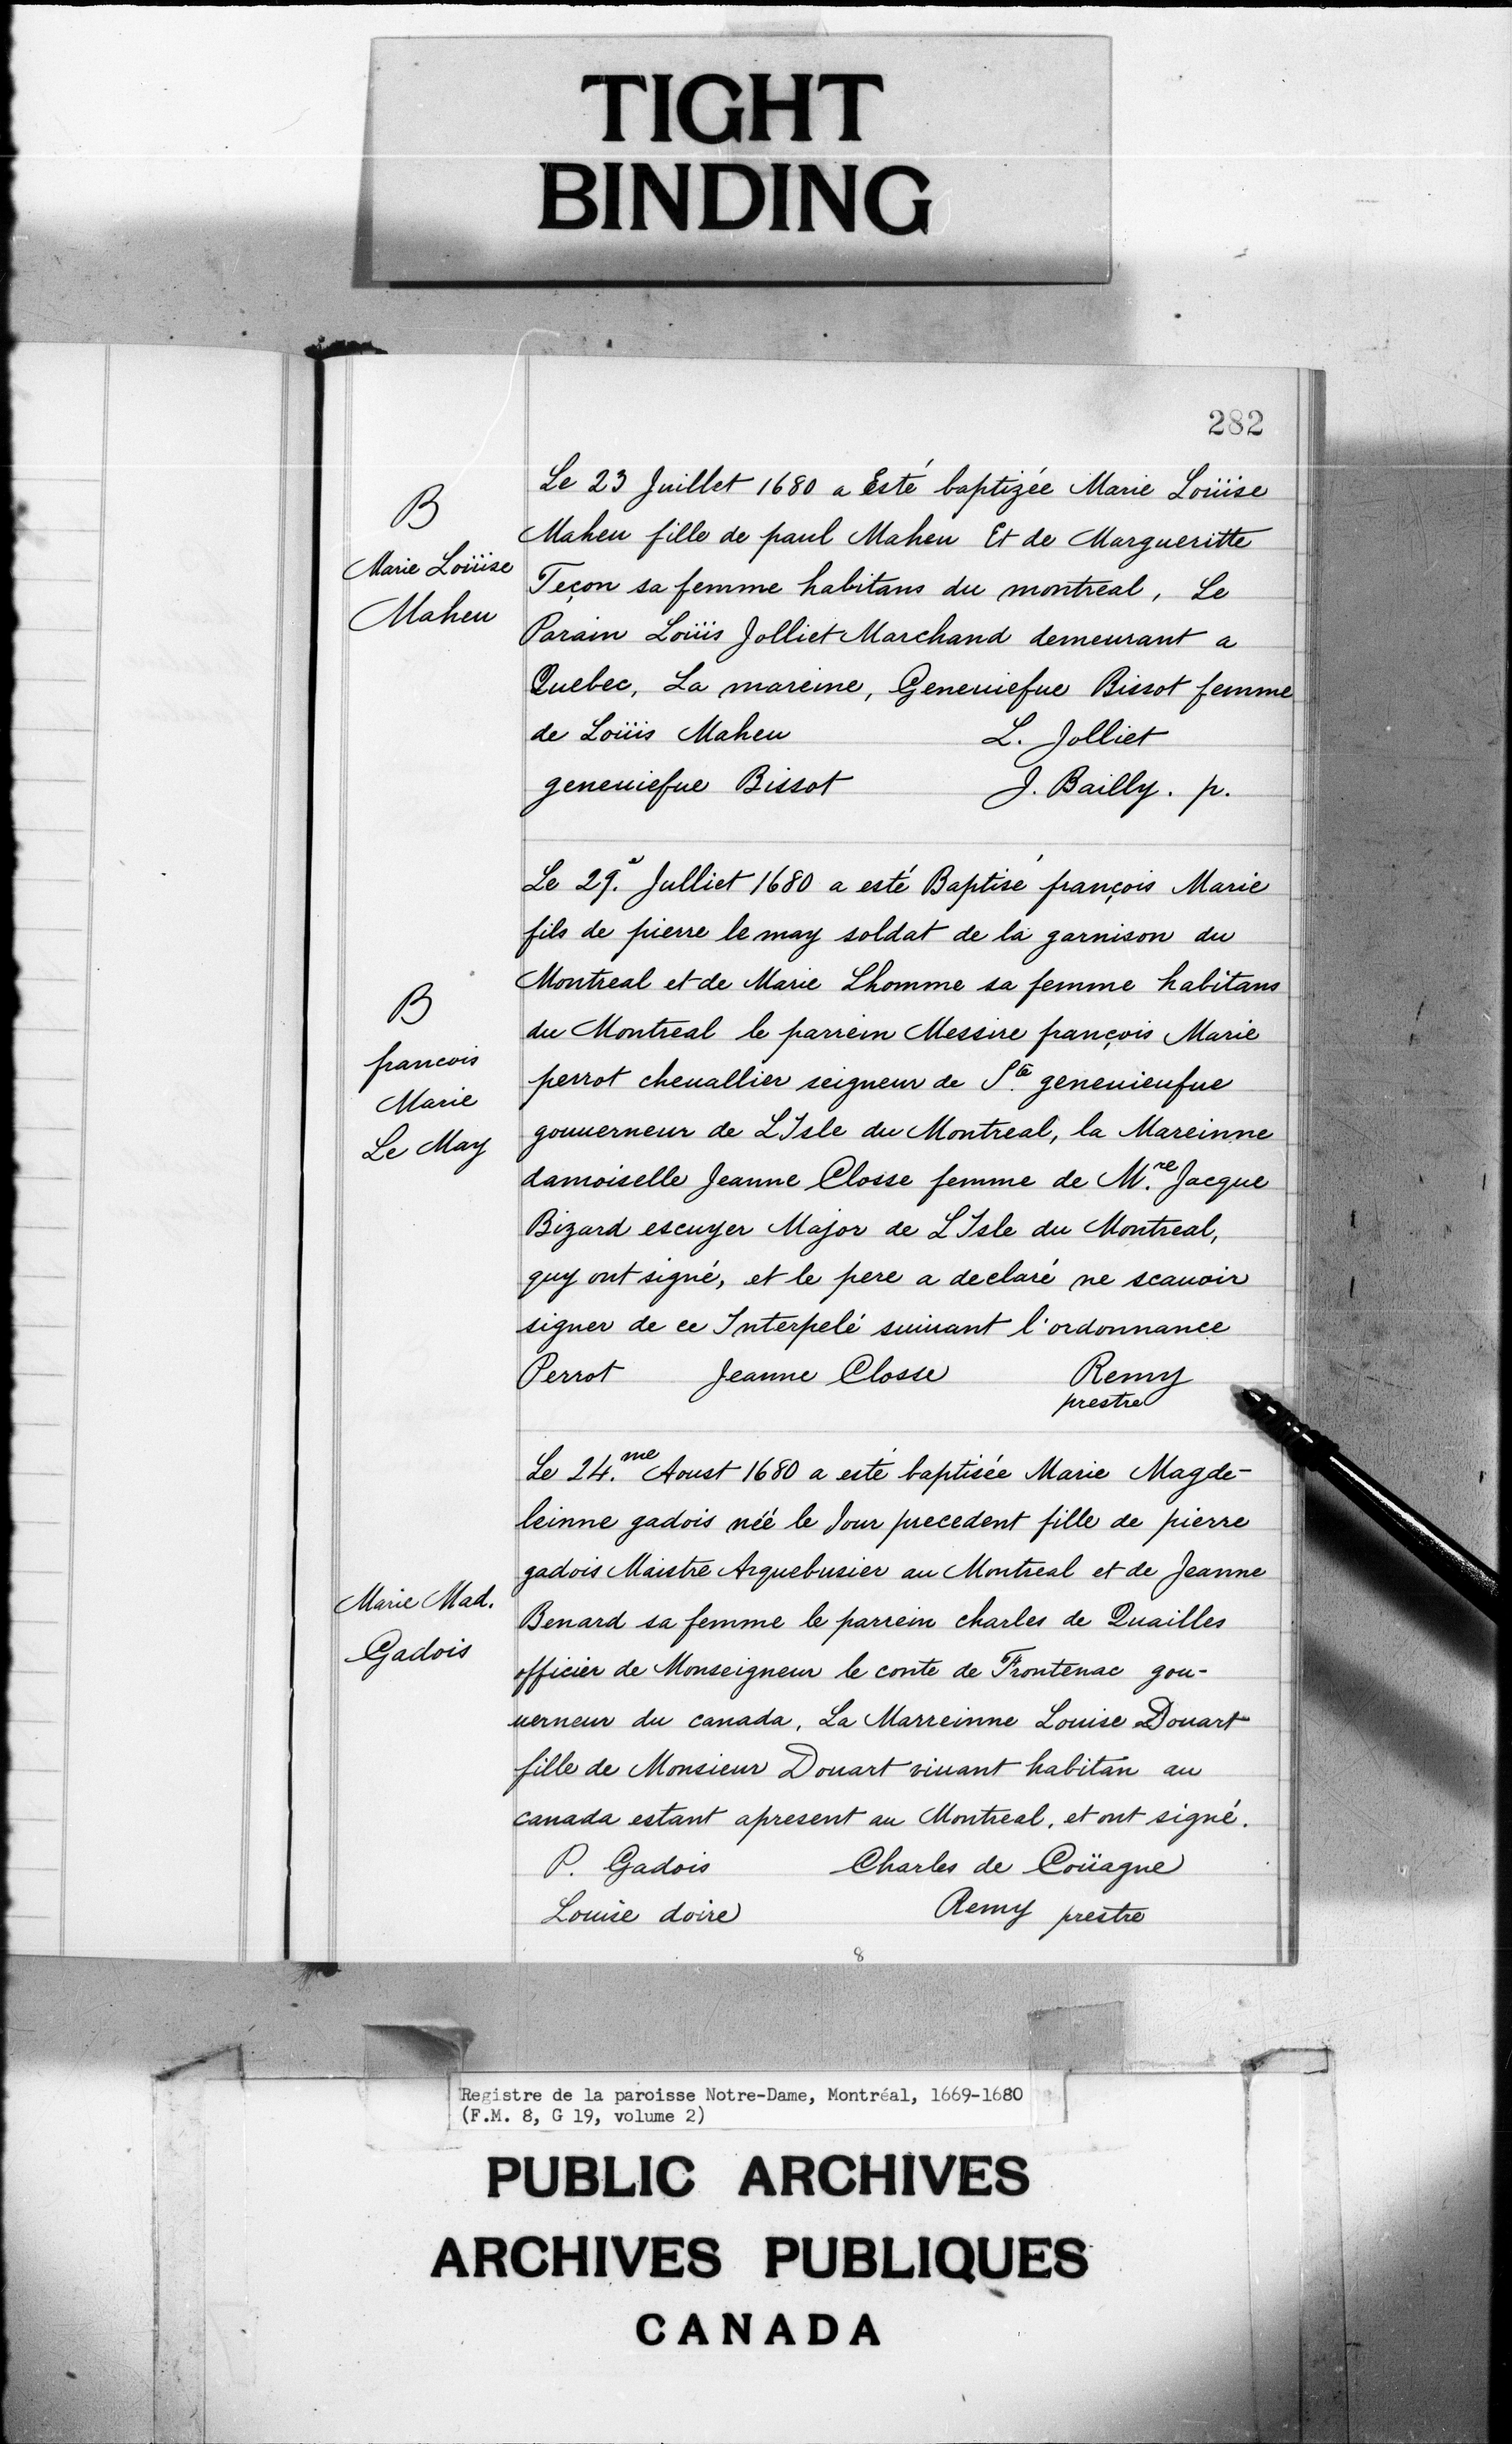 TIGHT
BINDING
282
B
Marie Loüise
Maheu
Le 23 Juillet 1680 a Esté baptizée Marie Loüise
Maheu fille de paul Maheu Et de Margueritte
Teçon sa femme habitans du montreal, Le
Parain Loüis Jolliet Marchand demeurant a
Quebec, La mareine, Geneuiefue Bissot femme
de Loüis Maheu L. Jolliet
geneuiefue Bissot J. Bailly. p.
B
francois
Marie
Le May
Le 29.e Julliet 1680 a esté Baptisé françois Marie
fils de pierre le may soldat de la garnison du
Montreal et de Marie Lhomme sa femme habitans
du Montreal le parrein Messire françois Marie
perrot cheuallier seigneur de Ste. geneuieufue
gouuerneur de L'Isle du Montreal, la Mareinne
damoiselle Jeanne Closse femme de M.re Jacque
Bizard escuyer Major de L'Isle du Montreal,
quy ont signé, et le pere a declaré ne scauoir
signer de ce Interpelé suiuant l'ordonnance
Perrot Jeanne Closse Remy
prestre
Marie Mad.
Gadois
Le 24.me Aoust 1680 a esté baptisée Marie Magde-
leinne gadois née le Jour precedent fille de pierre
gadois Maistre Arquebusier au Montreal et de Jeanne
Benard sa femme le parrein charles de Quailles
officier de Monseigneur le conte de Frontenac gou-
uerneur du canada, La Marreinne Louise Douart
fille de Monsieur Douart viuant habitan au
canada estant apresent au Montreal, et ont signé.
P. Gadois Charles de Coüagne
Louise doire Remy prestre
8
Registre de la paroisse Notre-Dame, Montréal, 1669-1680
(F.M. 8, G 19, volume 2)
PUBLIC ARCHIVES
ARCHIVES PUBLIQUES
CANADA